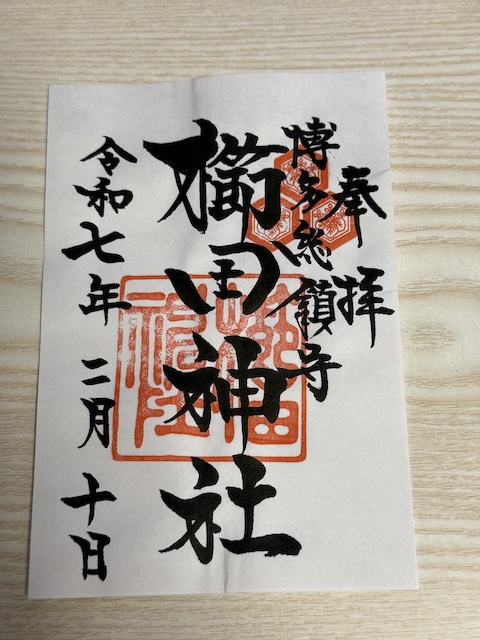 奉拝
博多総鎮守
櫛田神社
令和七年 二月 十日